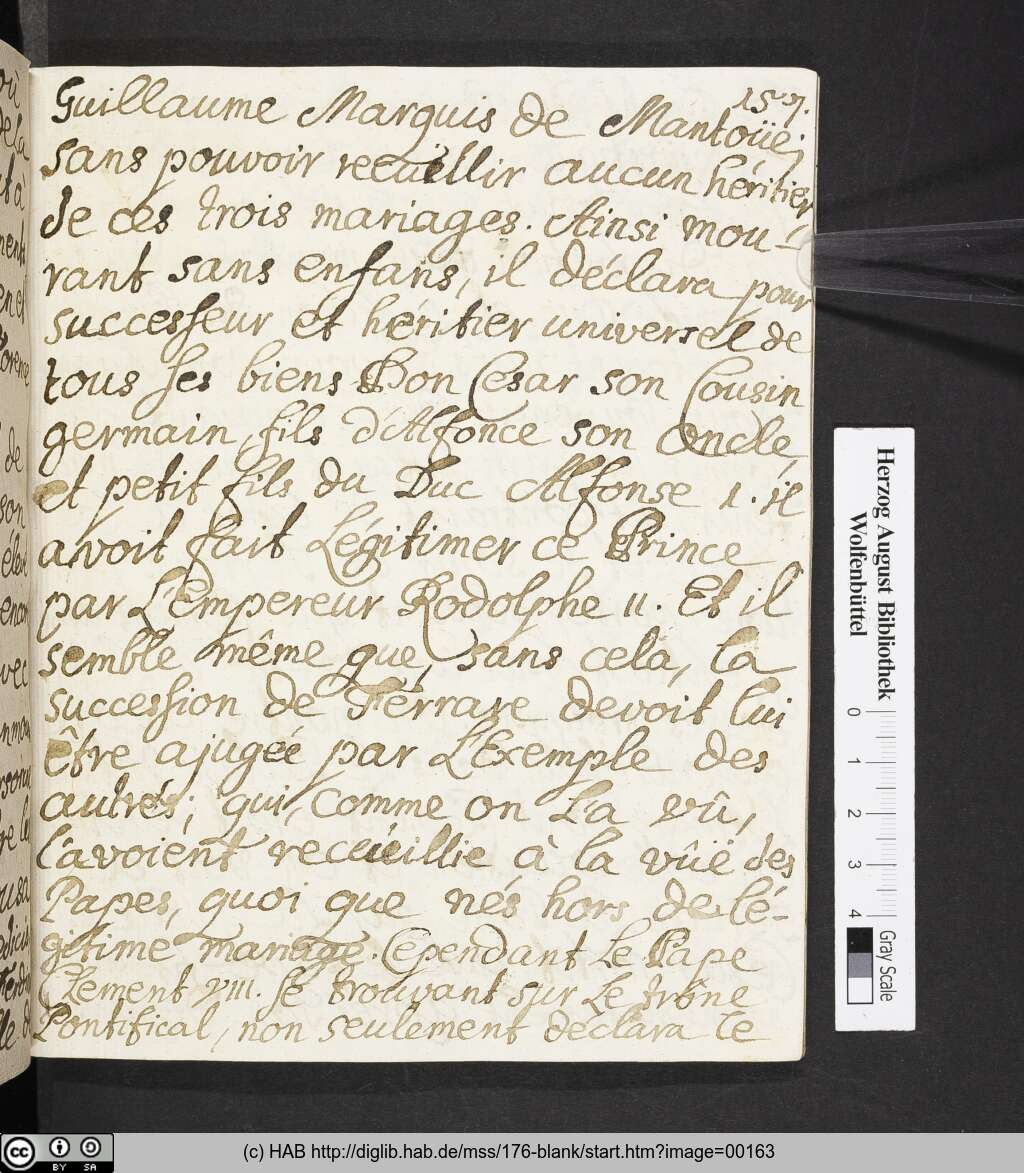 1597.
Guillaume Marquis de Mantoüe;
sans pouvoir recuëllir aucun héritier
de ces trois mariages. Ainsi mou-
rant sans enfans, il déclara pour
successeur et héritier universel de
tous ses biens Don Cesar son Cousin
germain, fils d'Alfonce son Oncle,
et petit fils du Duc Alfonse 1. il
avoit fait Légitimer ce Prince
par L'Empereur Rodolphe II. Et il
semble même que, sans cela, la
succession de Ferrare devoit lui
être ajugée par L'Exemple des
autres; qui, comme on La vû,
l'avoient recüeillie à la vûë des
Papes, quoi que nés hors de lé-
gitime mariage. Cependant Le Pape
Clement VIII. se trouvant sur Le trône
Pontifical, non seulement déclara le
Herzog August Bibliothek
Wolfenbüttel
0 1 2 3 4
Gray Scale
cc BY SA
(c) HAB http://diglib.hab.de/mss/176-blank/start.htm?image=00163